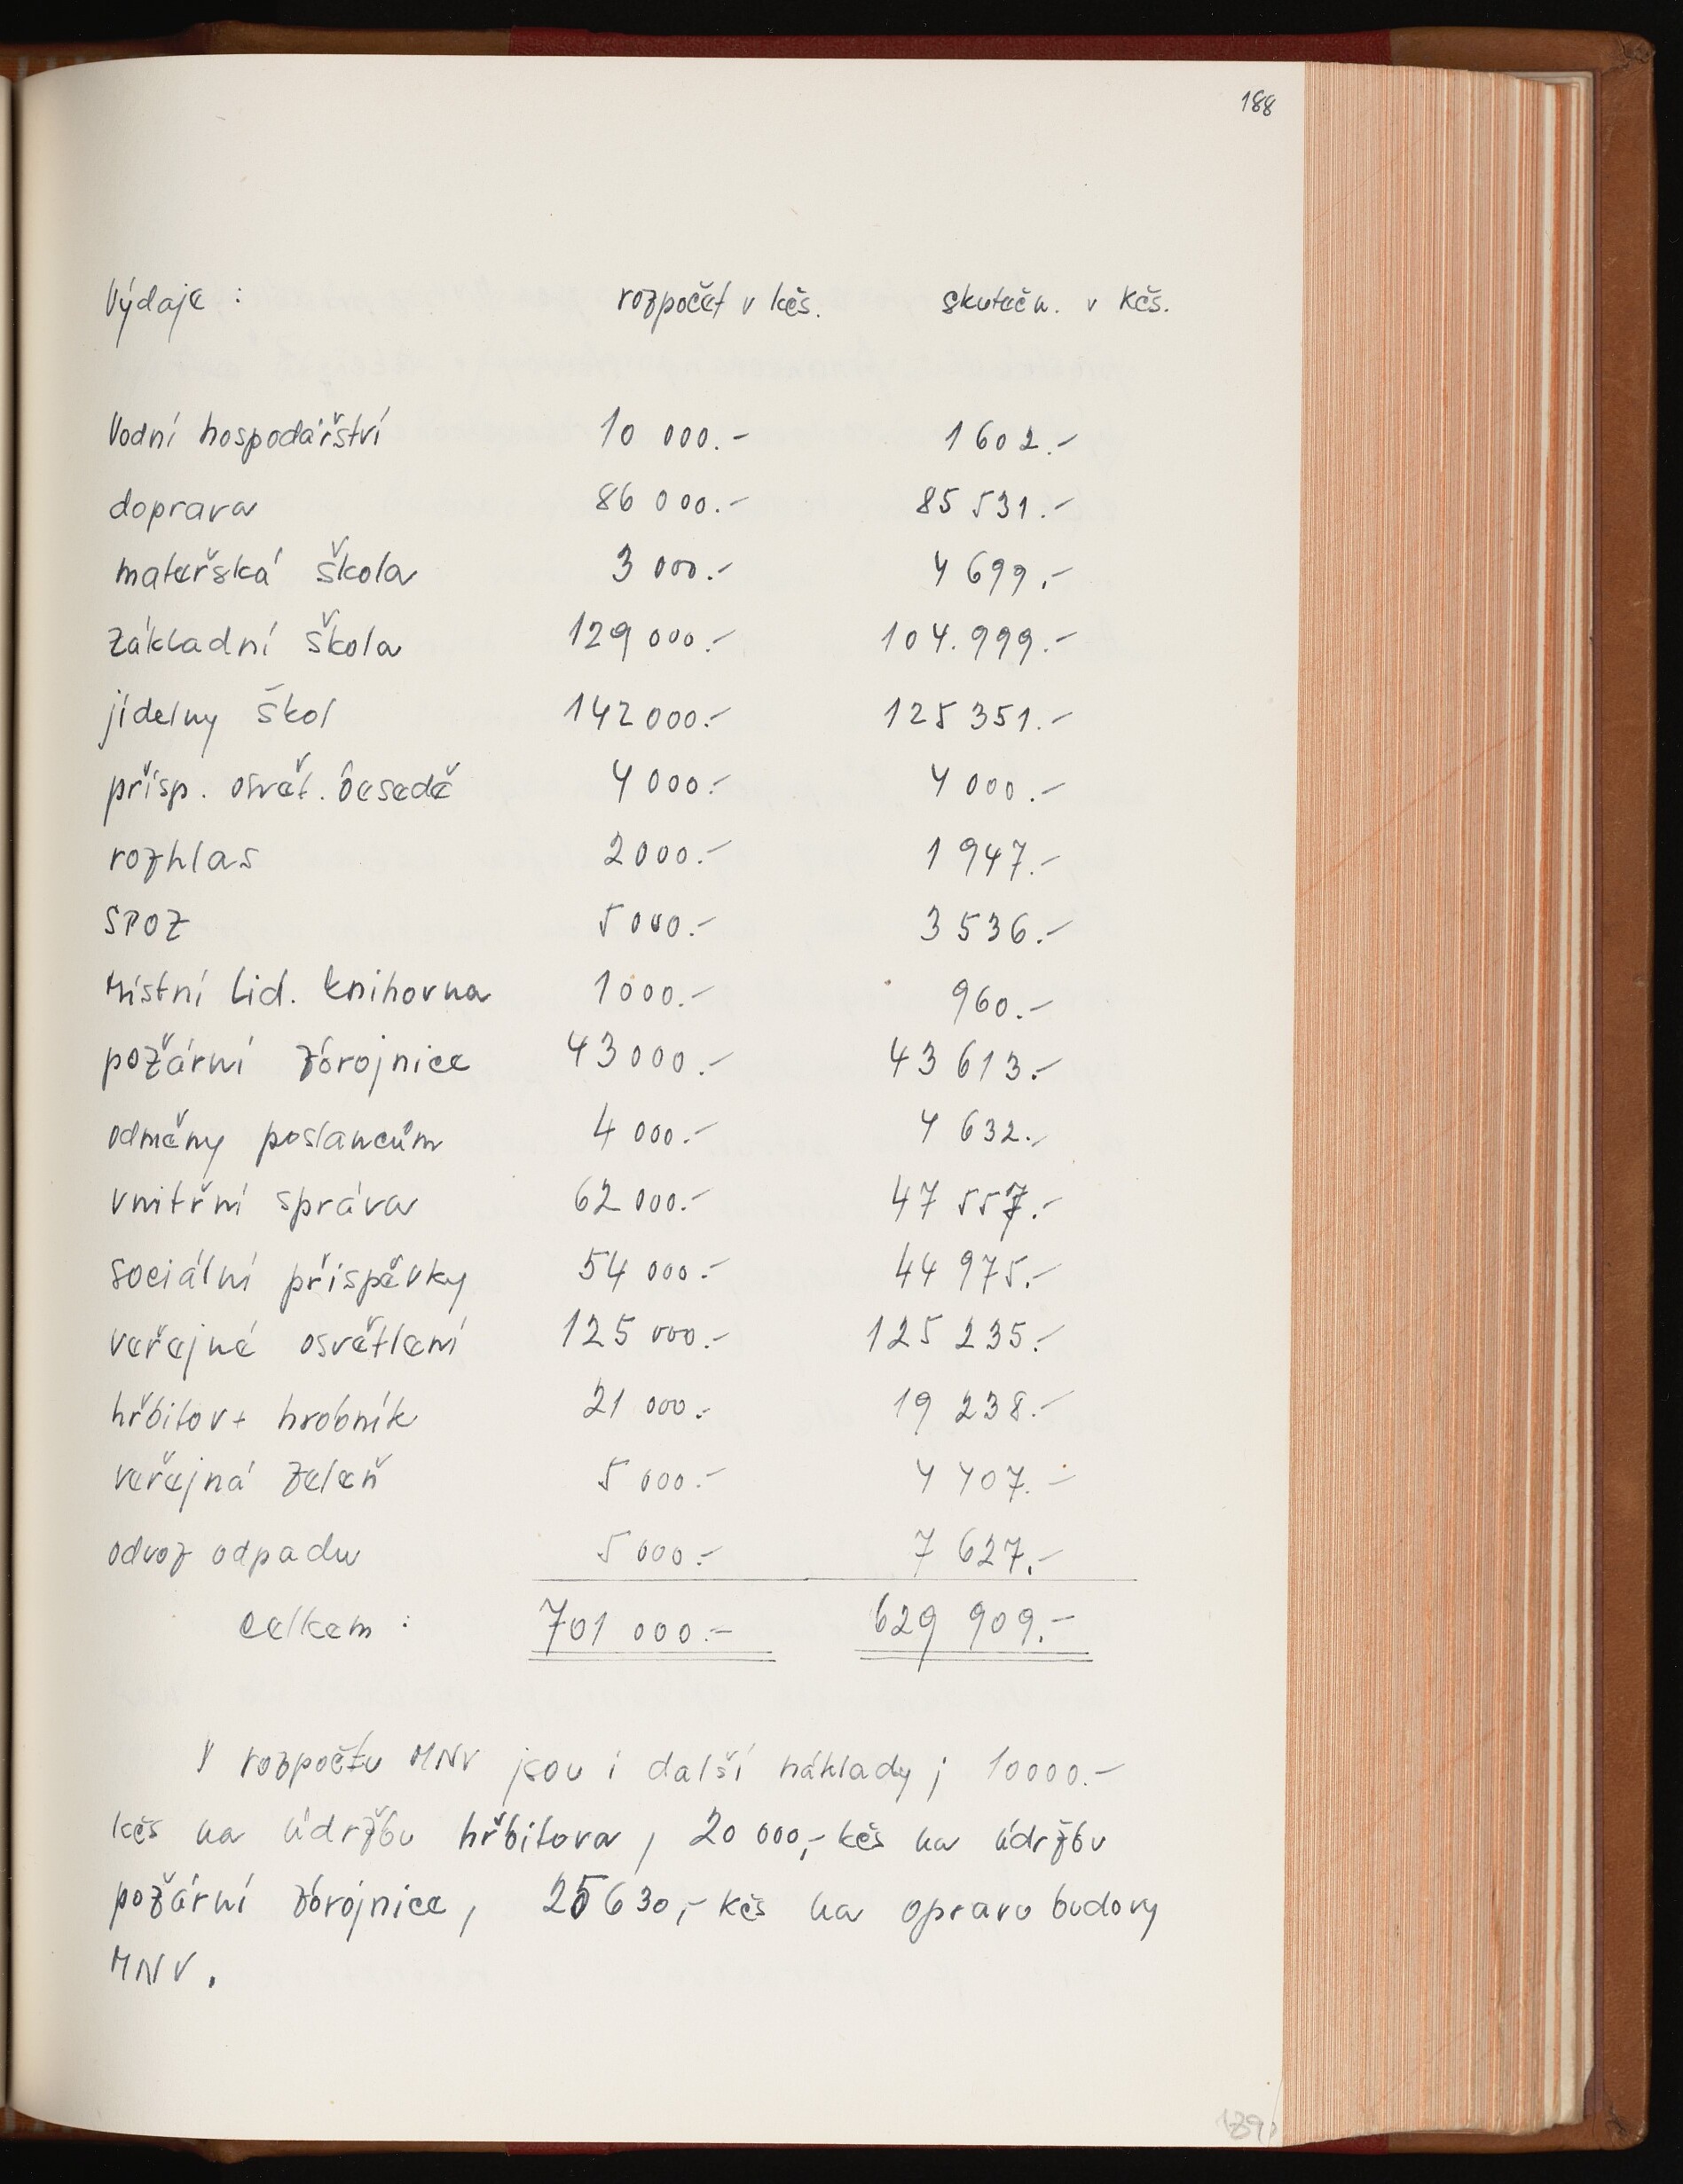 188
Výdaje : rozpočet v kčs. skutečn. v Kčs.
Vodní hospodářství 10 000.- 1602.-
doprava 86 000.- 85 531.-
mateřská škola 3 000.- 4 699.-
základní škola 129 000.- 104.999.-
jídelny škol 142 000.- 125 351.-
přísp. osvět. besedě 4 000.- 4 000.-
rozhlas 2000.- 1 947.-
SPOZ 5 000.- 3 536.-
Místní lid. knihovna 1000.- 960.-
požární zbrojnice 43 000.- 43 613.-
odměny poslancům 4 000.- 4 632.-
vnitřní správa 62 000.- 47 557.-
sociální příspěvky 54 000.- 44 975.-
veřejné osvětlení 125 000.- 125 235.-
hřbitov + hrobník 21 000.- 19 238.-
veřejná zeleň 5 000.- 4 407.-
odvoz odpadu 5 000.- 7 627.-
celkem : 701 000.- 629 909.-
V rozpočtu MNV jsou i další náklady ; 10000.-
kčs na údržbu hřbitova , 20 000,- kčs na údržbu
požární zbrojnice , 25 630,- kčs na opravu budovy
MNV .
189